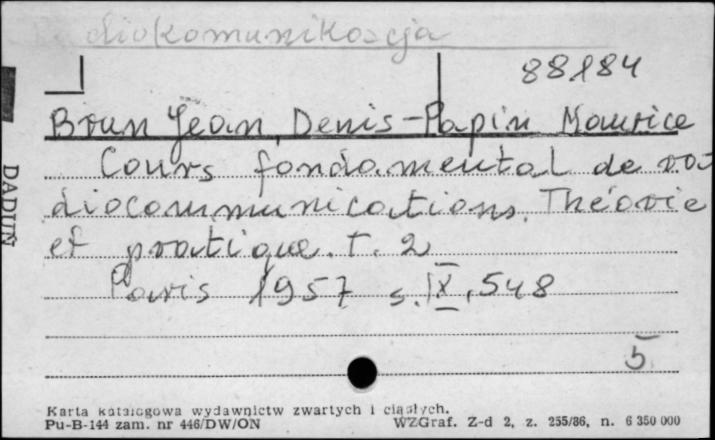 Radiokomunikacja
88184
Brun Jean, Denis-Papin Maurice
Cours fondamental de ra-
diocommunications. Théorie
et pratique. T. 2
Paris 1957 s. IX, 548
5
DADUN
Karta katalogowa wydawnictw zwartych i ciągłych.
Pu-B-144 zam. nr 446/DW/ON WZGraf. Z-d 2, z. 255/86, n. 6 350 000